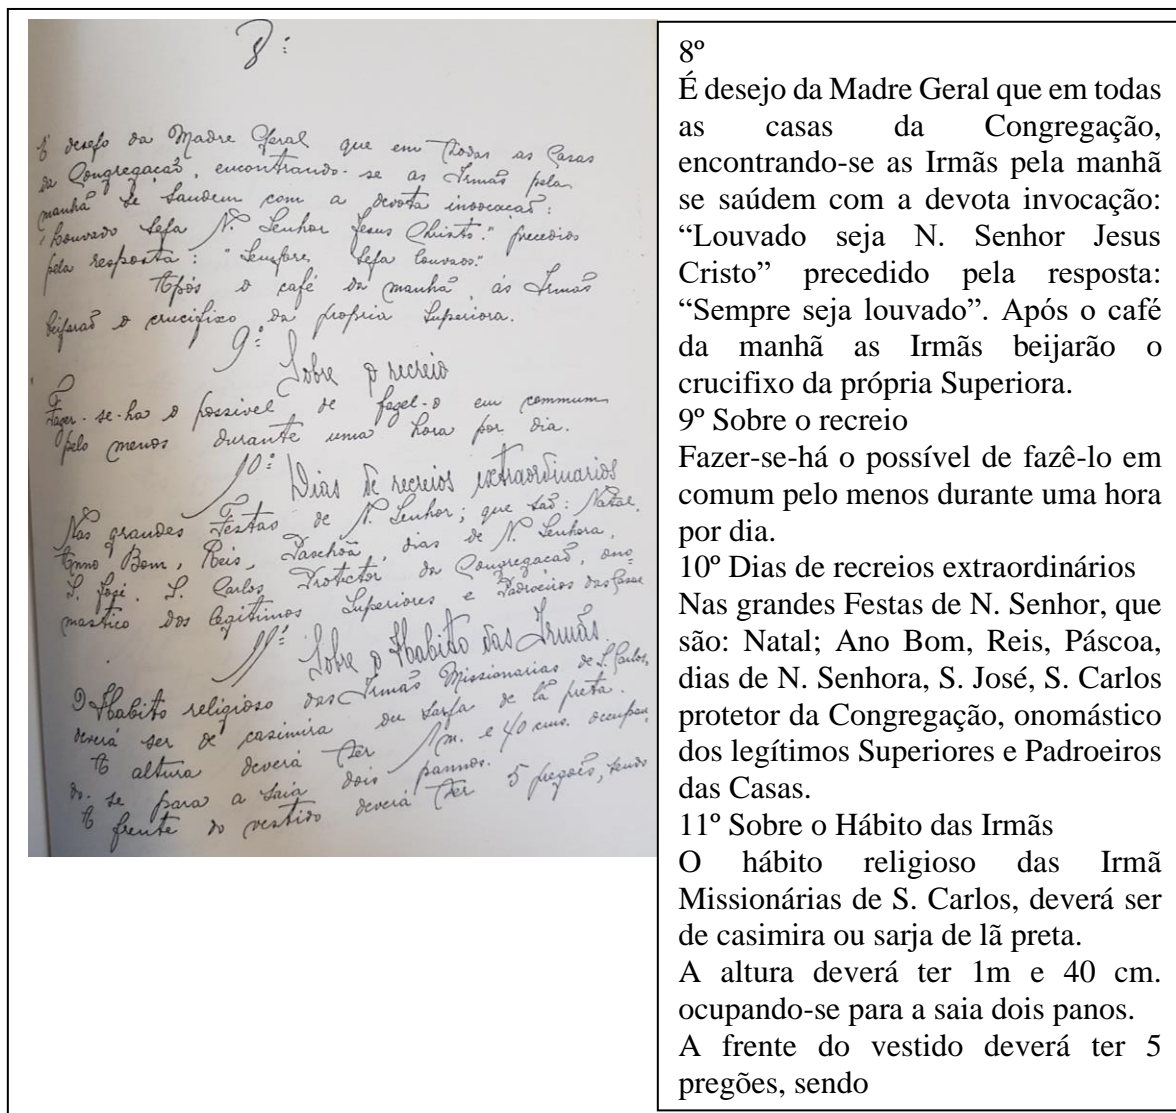 8º
É desejo da Madre Geral que em thodas as Casas
da Congregação, encontrando-se as Irmãs pela
manhã se saudem com a devota invocacaõ:
"Louvado seja N. Senhor Jesus Christo." precedido
pela resposta: "Sempre seja louvado."
Após o café da manhã, as Irmãs
beijaraõ o crucifixo da propria Superiora.
9º
Sobre o recreio
Fazer-se-ha o possivel de fazel-o em commum
pelo menos durante uma hora por dia.
10º
Dias de recreios extraordinarios
Nas grandes Festas de N. Senhor; que saõ: Natal,
Anno Bom, Reis, Paschoa, dias de N. Senhora,
S. José, S. Carlos Protector da Congregacaõ, ono
mastico dos legitimos Superiores e Padroeiros das Casas
11º
Sobre o Habito das Irmãs
O Habito religioso das Irmãs Missionarias de S. Carlos,
deverá ser de casimira ou sarja de lã preta.
A altura deverá ter 1m. e 40 cms. occupan
do-se para a saia dois pannos.
A frente do vestido deverá ter 5 pregoẽs, sendo
8º
É desejo da Madre Geral que em todas
as casas da Congregação,
encontrando-se as Irmãs pela manhã
se saúdem com a devota invocação:
“Louvado seja N. Senhor Jesus
Cristo” precedido pela resposta:
“Sempre seja louvado”. Após o café
da manhã as Irmãs beijarão o
crucifixo da própria Superiora.
9º Sobre o recreio
Fazer-se-há o possível de fazê-lo em
comum pelo menos durante uma hora
por dia.
10º Dias de recreios extraordinários
Nas grandes Festas de N. Senhor, que
são: Natal; Ano Bom, Reis, Páscoa,
dias de N. Senhora, S. José, S. Carlos
protetor da Congregação, onomástico
dos legítimos Superiores e Padroeiros
das Casas.
11º Sobre o Hábito das Irmãs
O hábito religioso das Irmã
Missionárias de S. Carlos, deverá ser
de casimira ou sarja de lã preta.
A altura deverá ter 1m e 40 cm.
ocupando-se para a saia dois panos.
A frente do vestido deverá ter 5
pregões, sendo